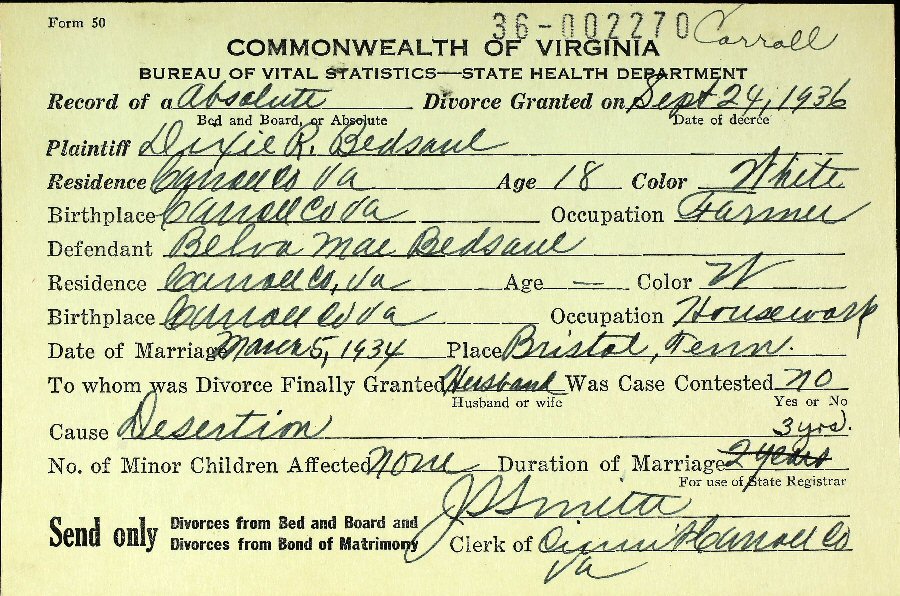 Form 50
36-002270 Carroll
COMMONWEALTH OF VIRGINIA
BUREAU OF VITAL STATISTICS—STATE HEALTH DEPARTMENT
Record of a Absolute Divorce Granted on Sept 24, 1936
Bed and Board, or Absolute Date of decree
Plaintiff Dixie R. Bedsaul
Residence Carroll Co Va Age 18 Color White
Birthplace Carroll Co Va Occupation Farmer
Defendant Belva Mae Bedsaul
Residence Carroll Co, Va Age — Color W
Birthplace Carroll Co Va Occupation Housework
Date of Marriage March 5, 1934 Place Bristol, Tenn.
To whom was Divorce Finally Granted Husband Was Case Contested no
Husband or wife Yes or No
Cause Desertion
3 yrs.
No. of Minor Children Affected None Duration of Marriage 2 years
For use of State Registrar
J P Smith
Send only Divorces from Bed and Board and
Divorces from Bond of Matrimony
Clerk of Carroll Co
Va